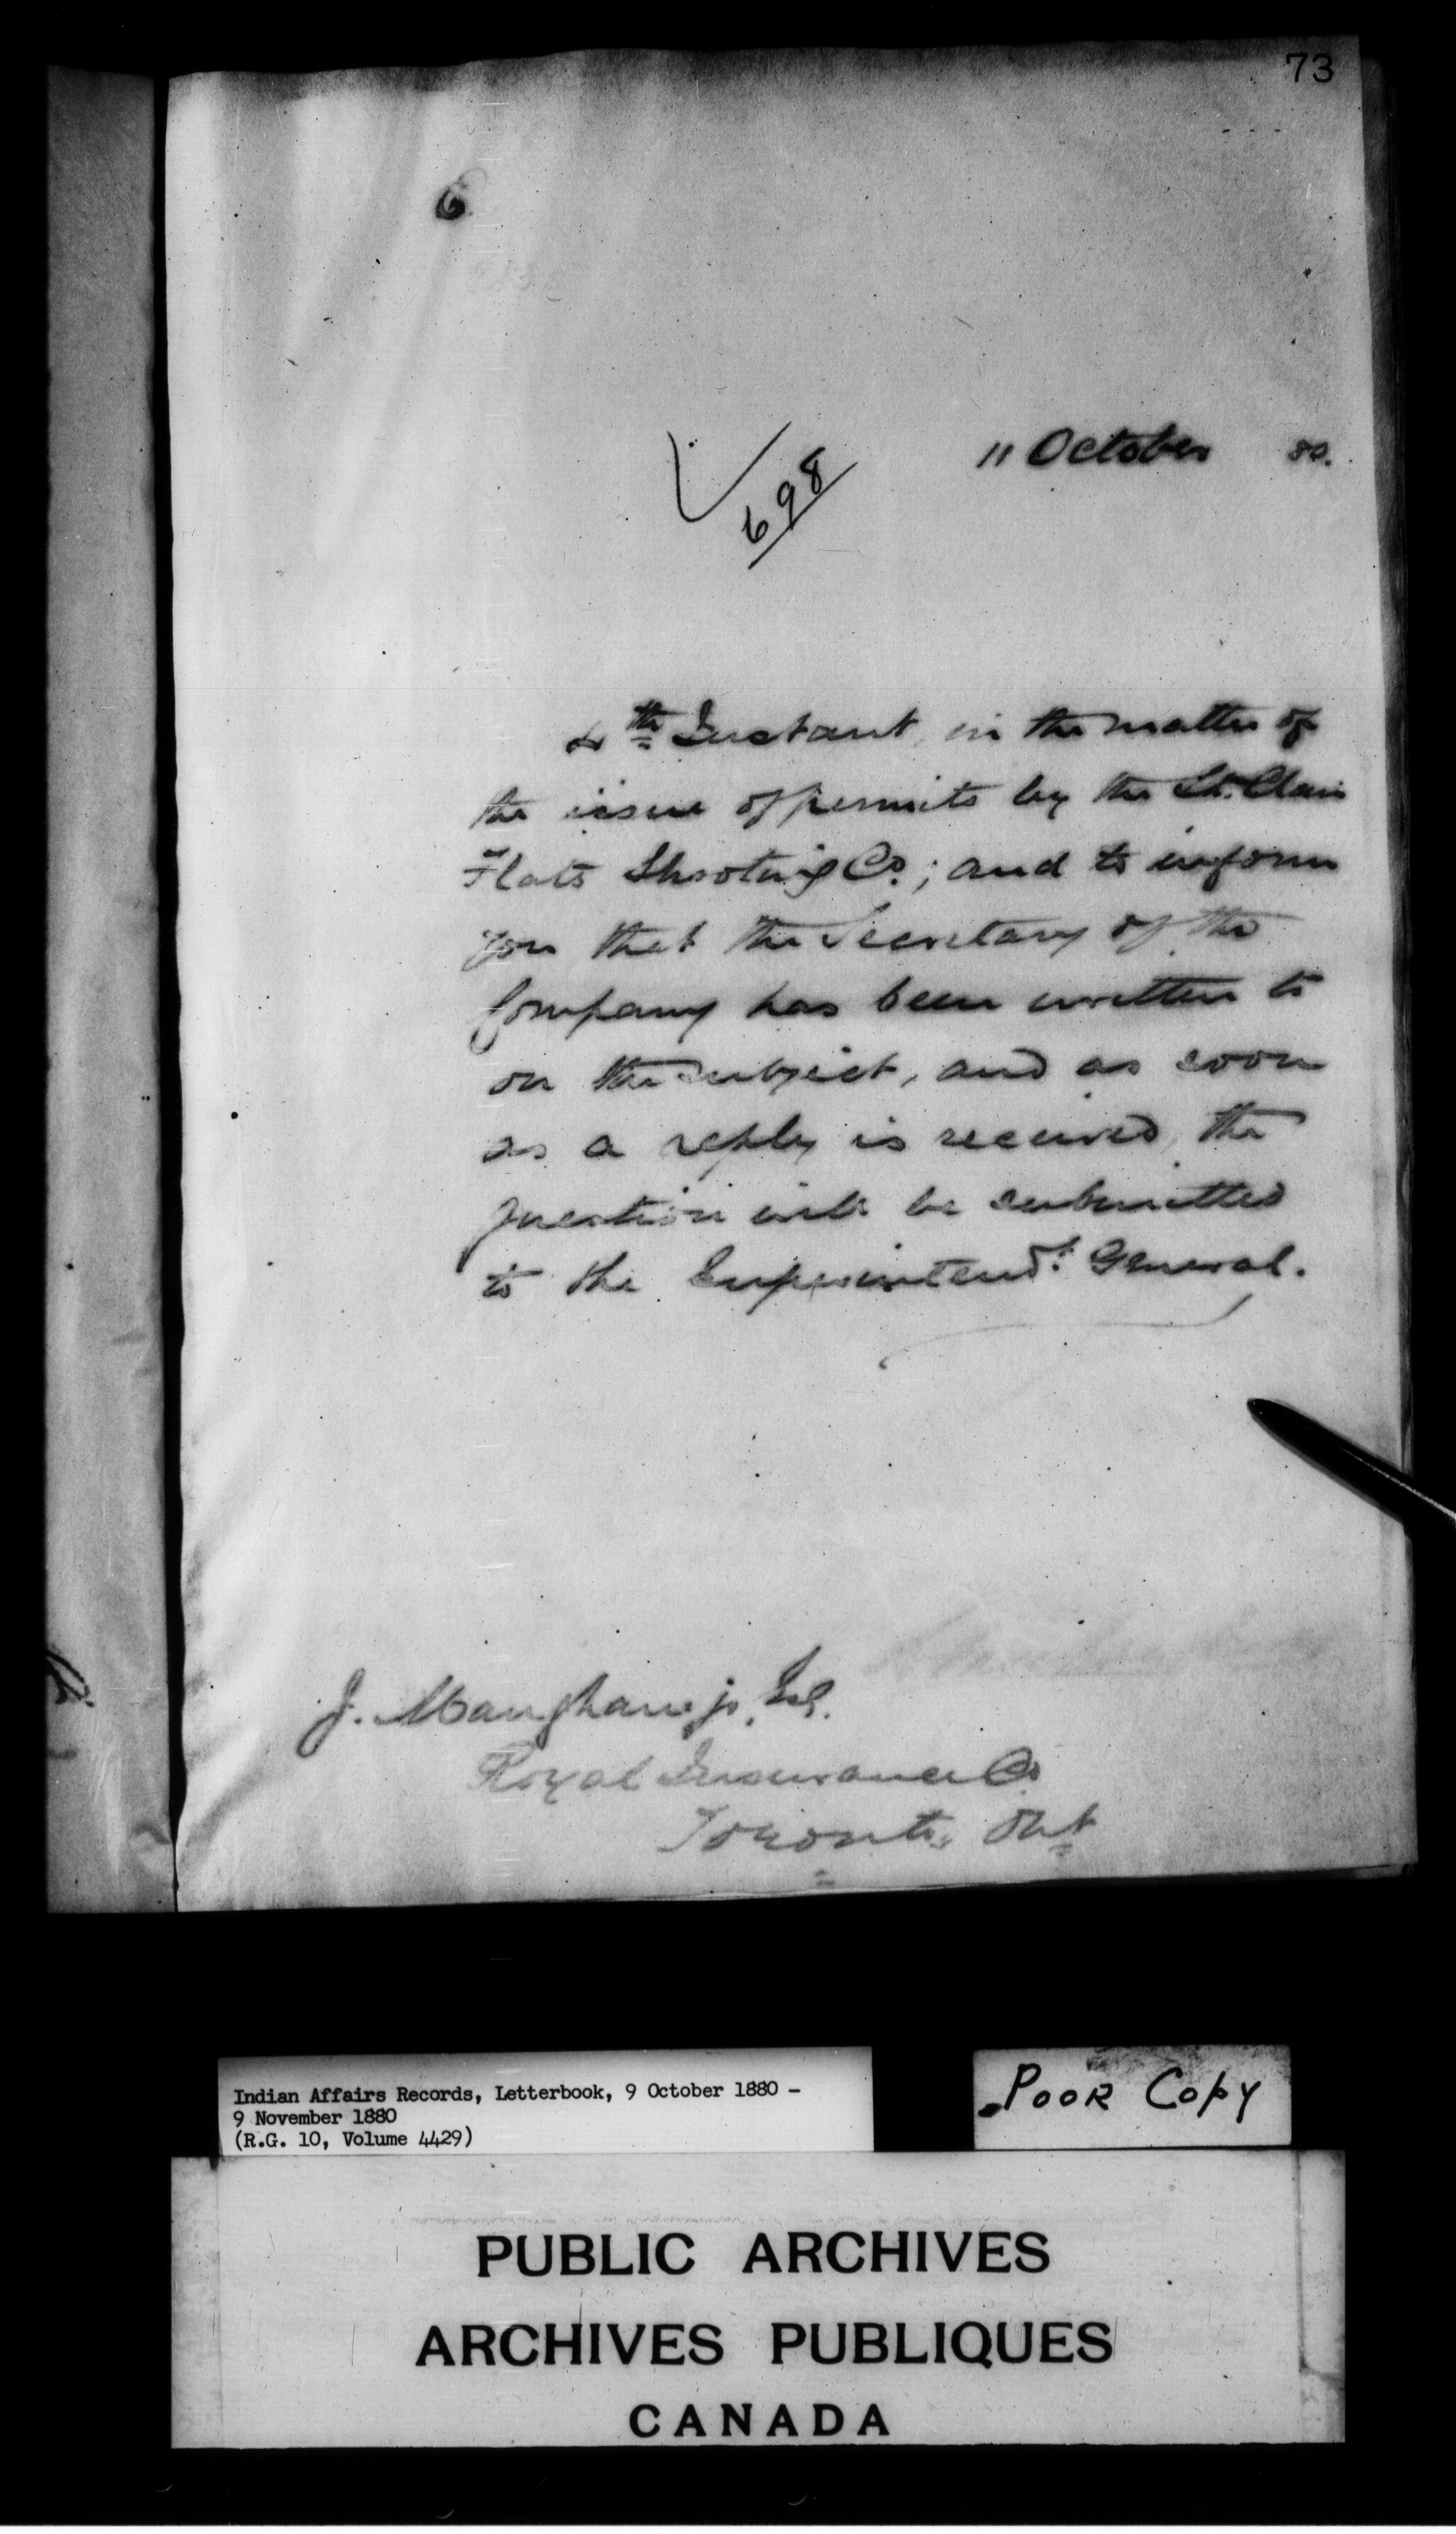 73
6
11 October 80.
698
4th Instant, in the matter of
the issue of permits by the St. Clair
Flats Shooting Co.; and to inform
you that the Secretary of the
Company has been written to
on the subject, and as soon
as a reply is received, the
question will be submitted
to the Superintendt. General.
J. Maughan jr. Esq.
Royal Insurance Co
Toronto, Ont
Indian Affairs Records, Letterbook, 9 October 1880 -
9 November 1880
(R.G. 10, Volume 4429)
Poor Copy
PUBLIC ARCHIVES
ARCHIVES PUBLIQUES
CANADA